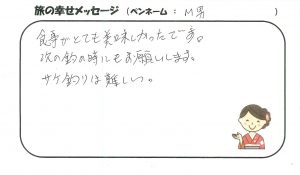 旅の幸せメッセージ（ペンネーム：M男）
食事がとても美味しかったです。
次の釣の時にもお願いします。
サケ釣りは難しい。